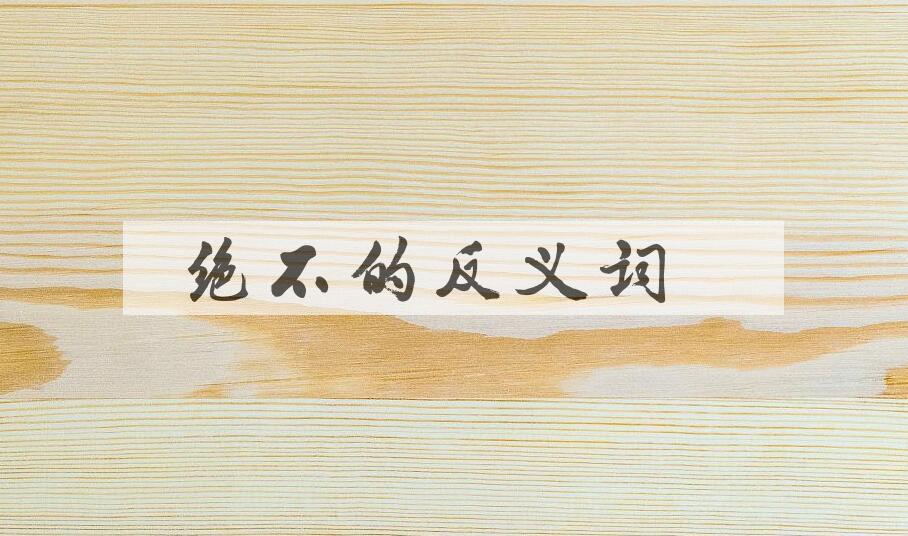 绝不的反义词